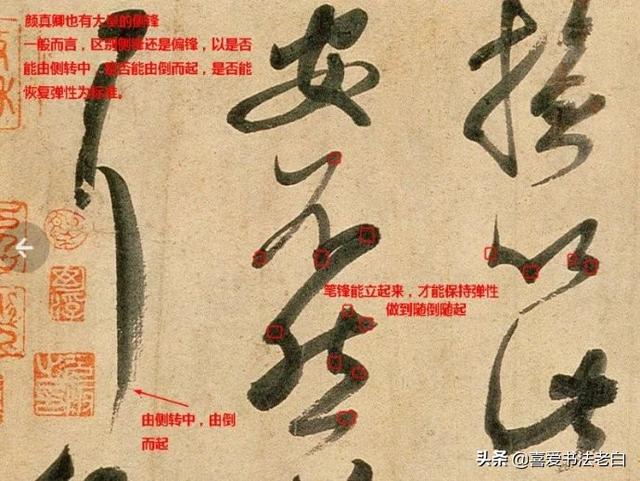 颜真卿也有大量的侧锋
一般而言，区别侧锋还是偏锋，以是否
能由侧转中，是否能由倒而起，是否能
恢复弹性为标准。
拯以此
安不然
耳
笔锋能立起来，才能保持弹性
做到随倒随起
由侧转中，由倒
而起
头条 @喜爱书法老白